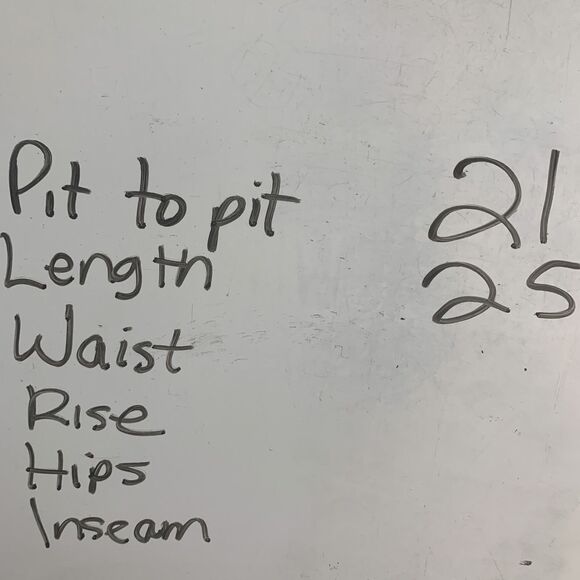 Pit to pit 21
Length 25
Waist
Rise
Hips
Inseam